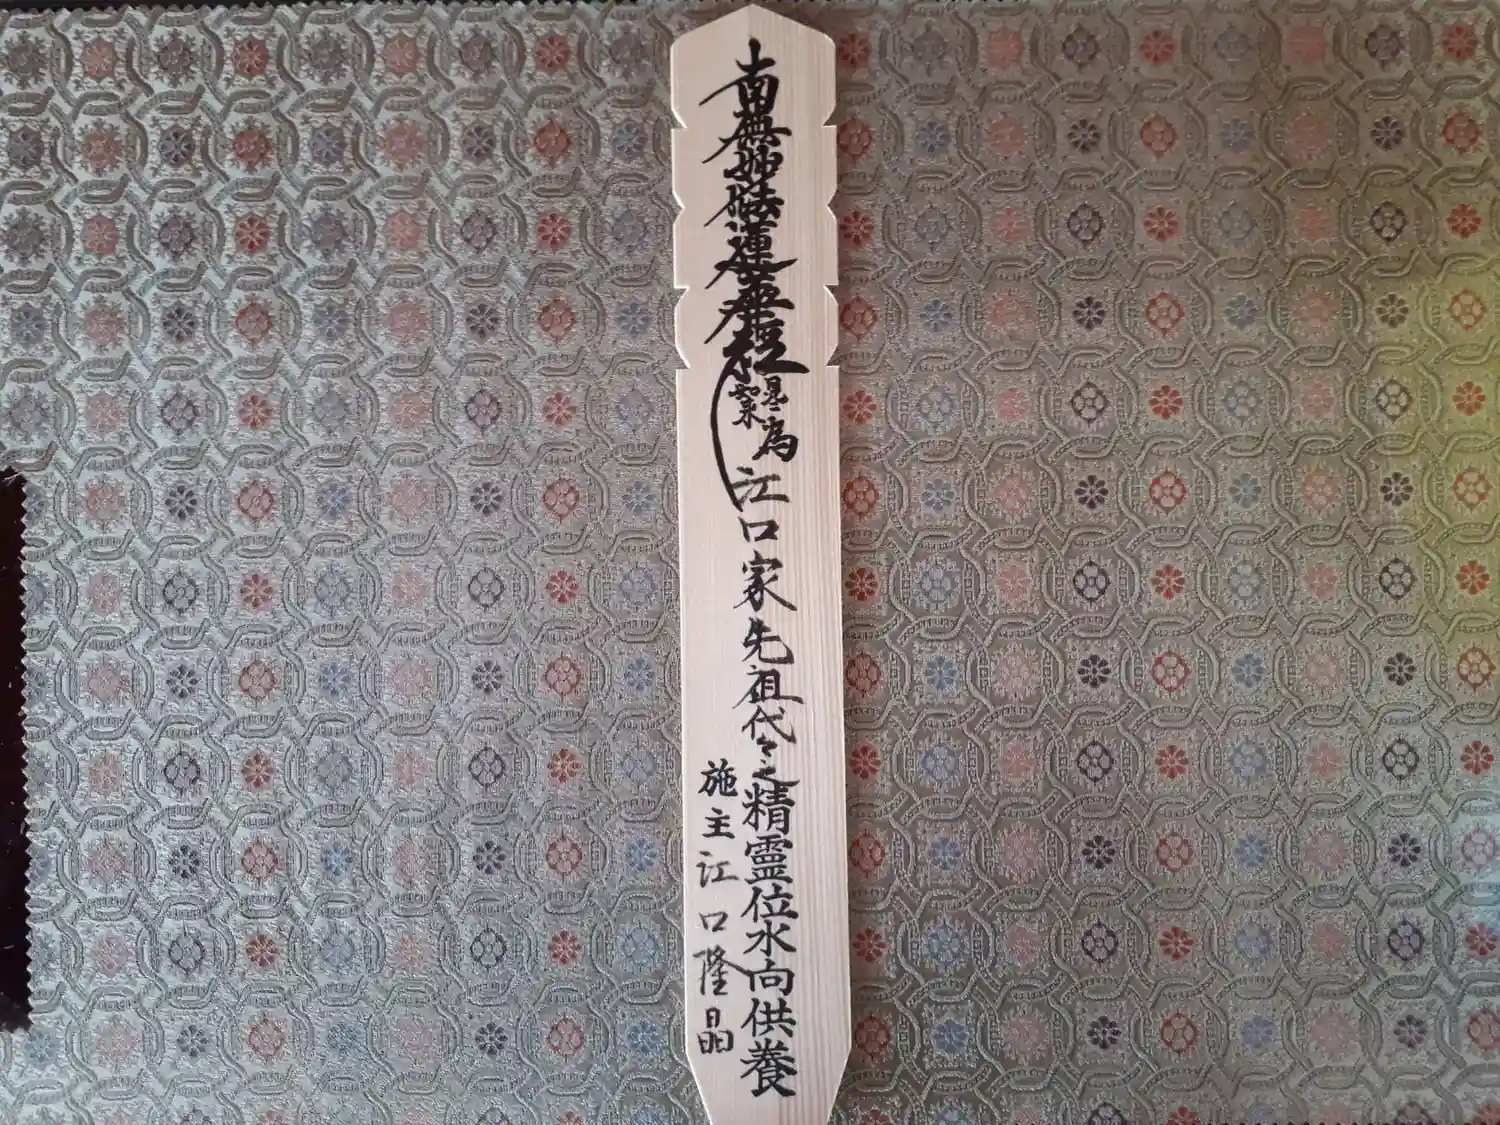 南無妙法蓮華経
為
江口家先祖代々之精霊位水向供養
施主江口隆晶